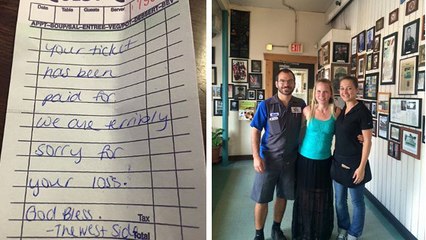 Date Table Guests Server
APPT-SOUP/SAL-ENTREE-VEG/POT-DESSERT-BEV
your ticket
has been
paid for
we are terribly
sorry for
your loss!
God Bless. Tax
-The West Side Total
EXIT